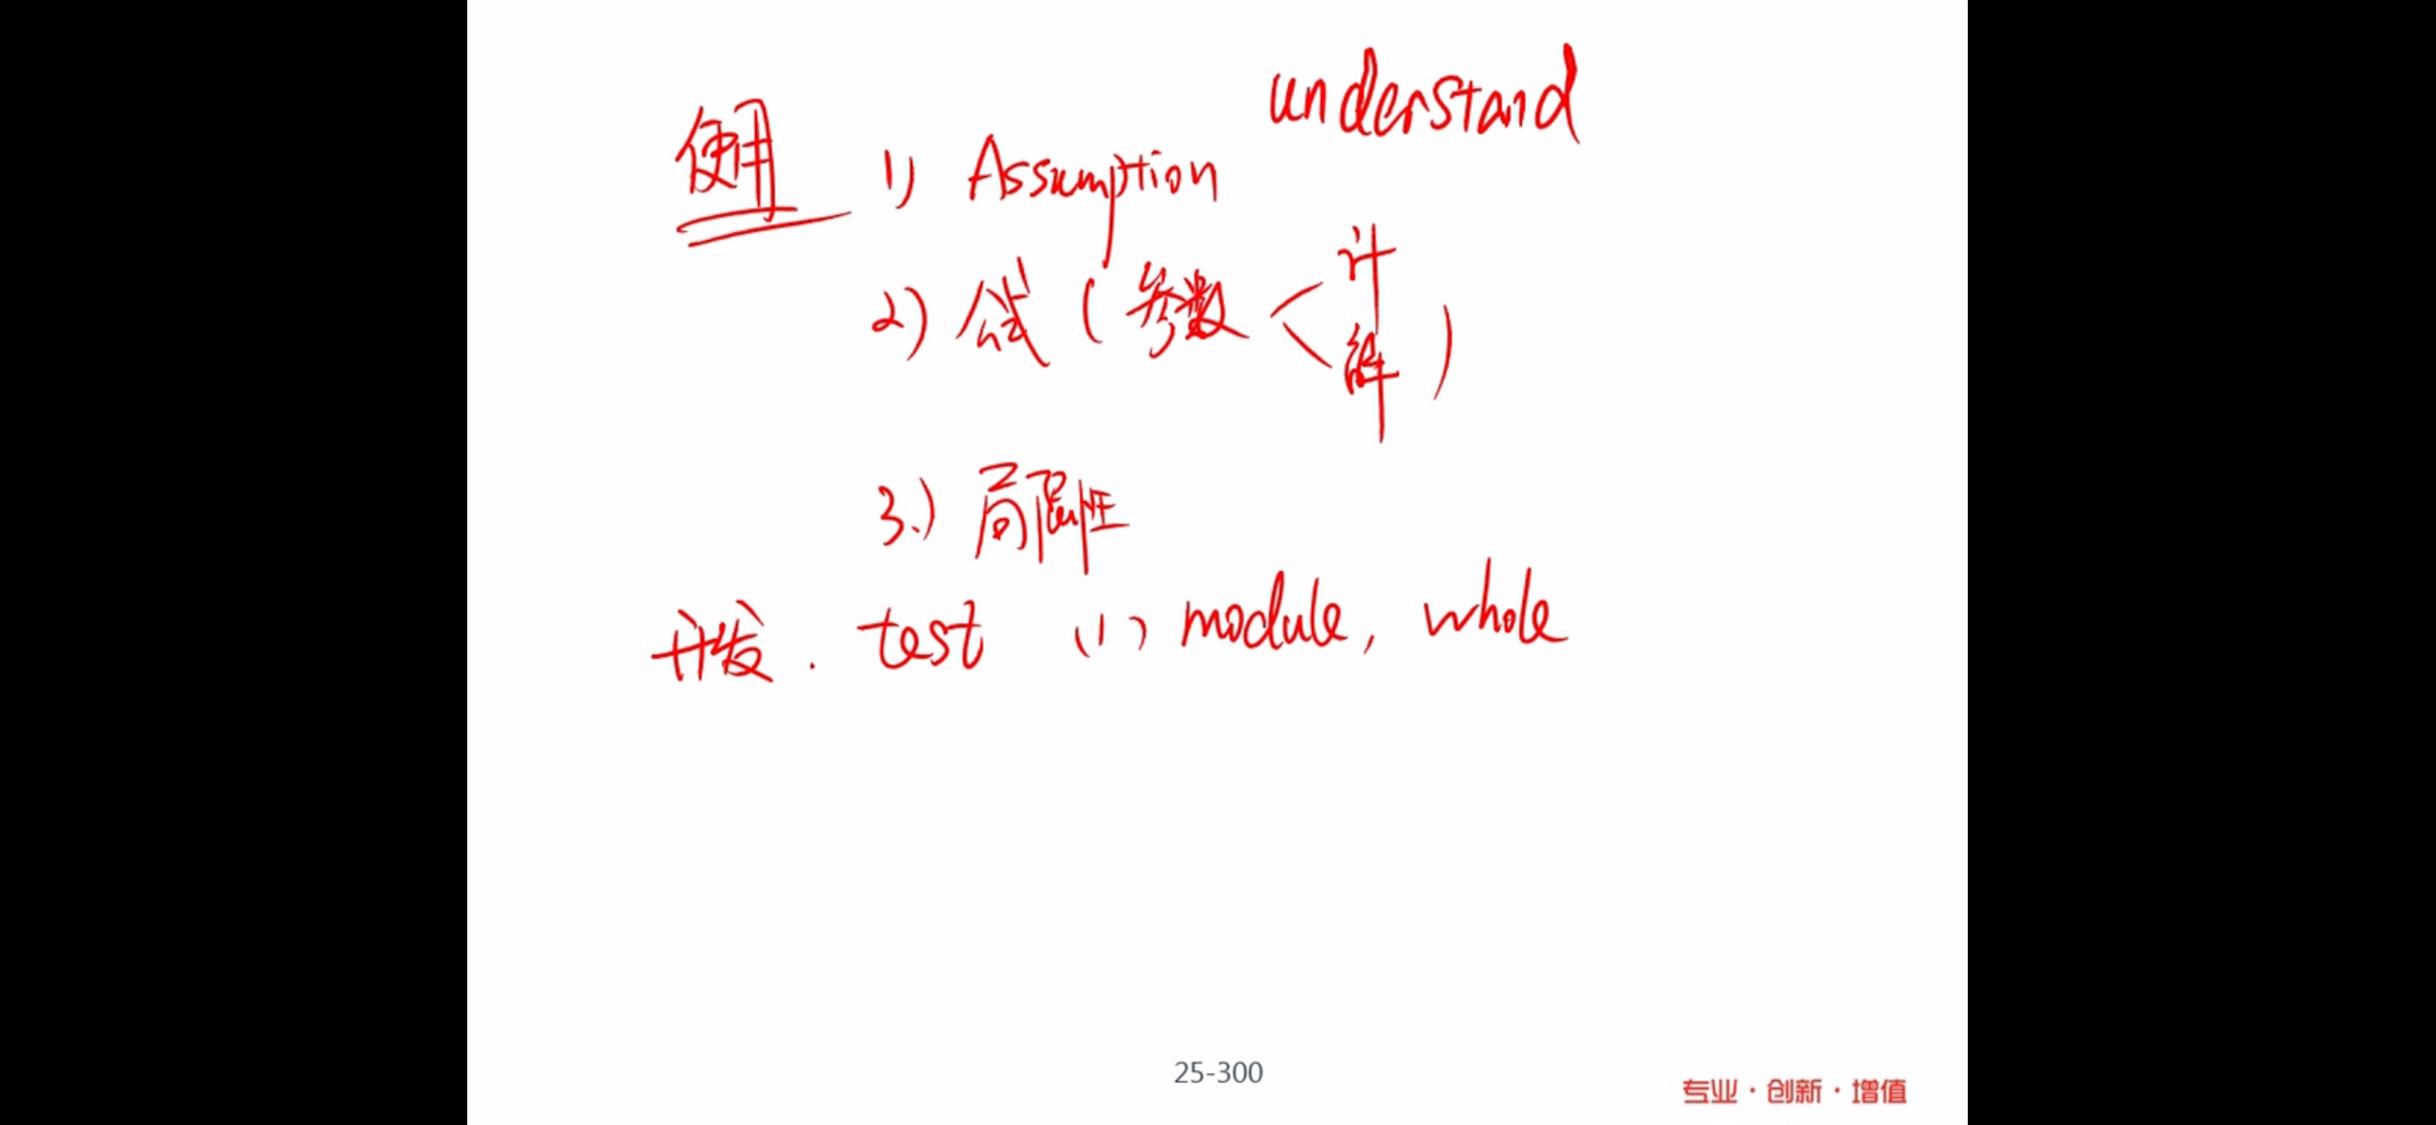 understand
使用 1) Assumption
2) 公式 (参数 < 计
解 )
3.) 局限性
开发. test (1) module, whole
25-300
专业·创新·增值